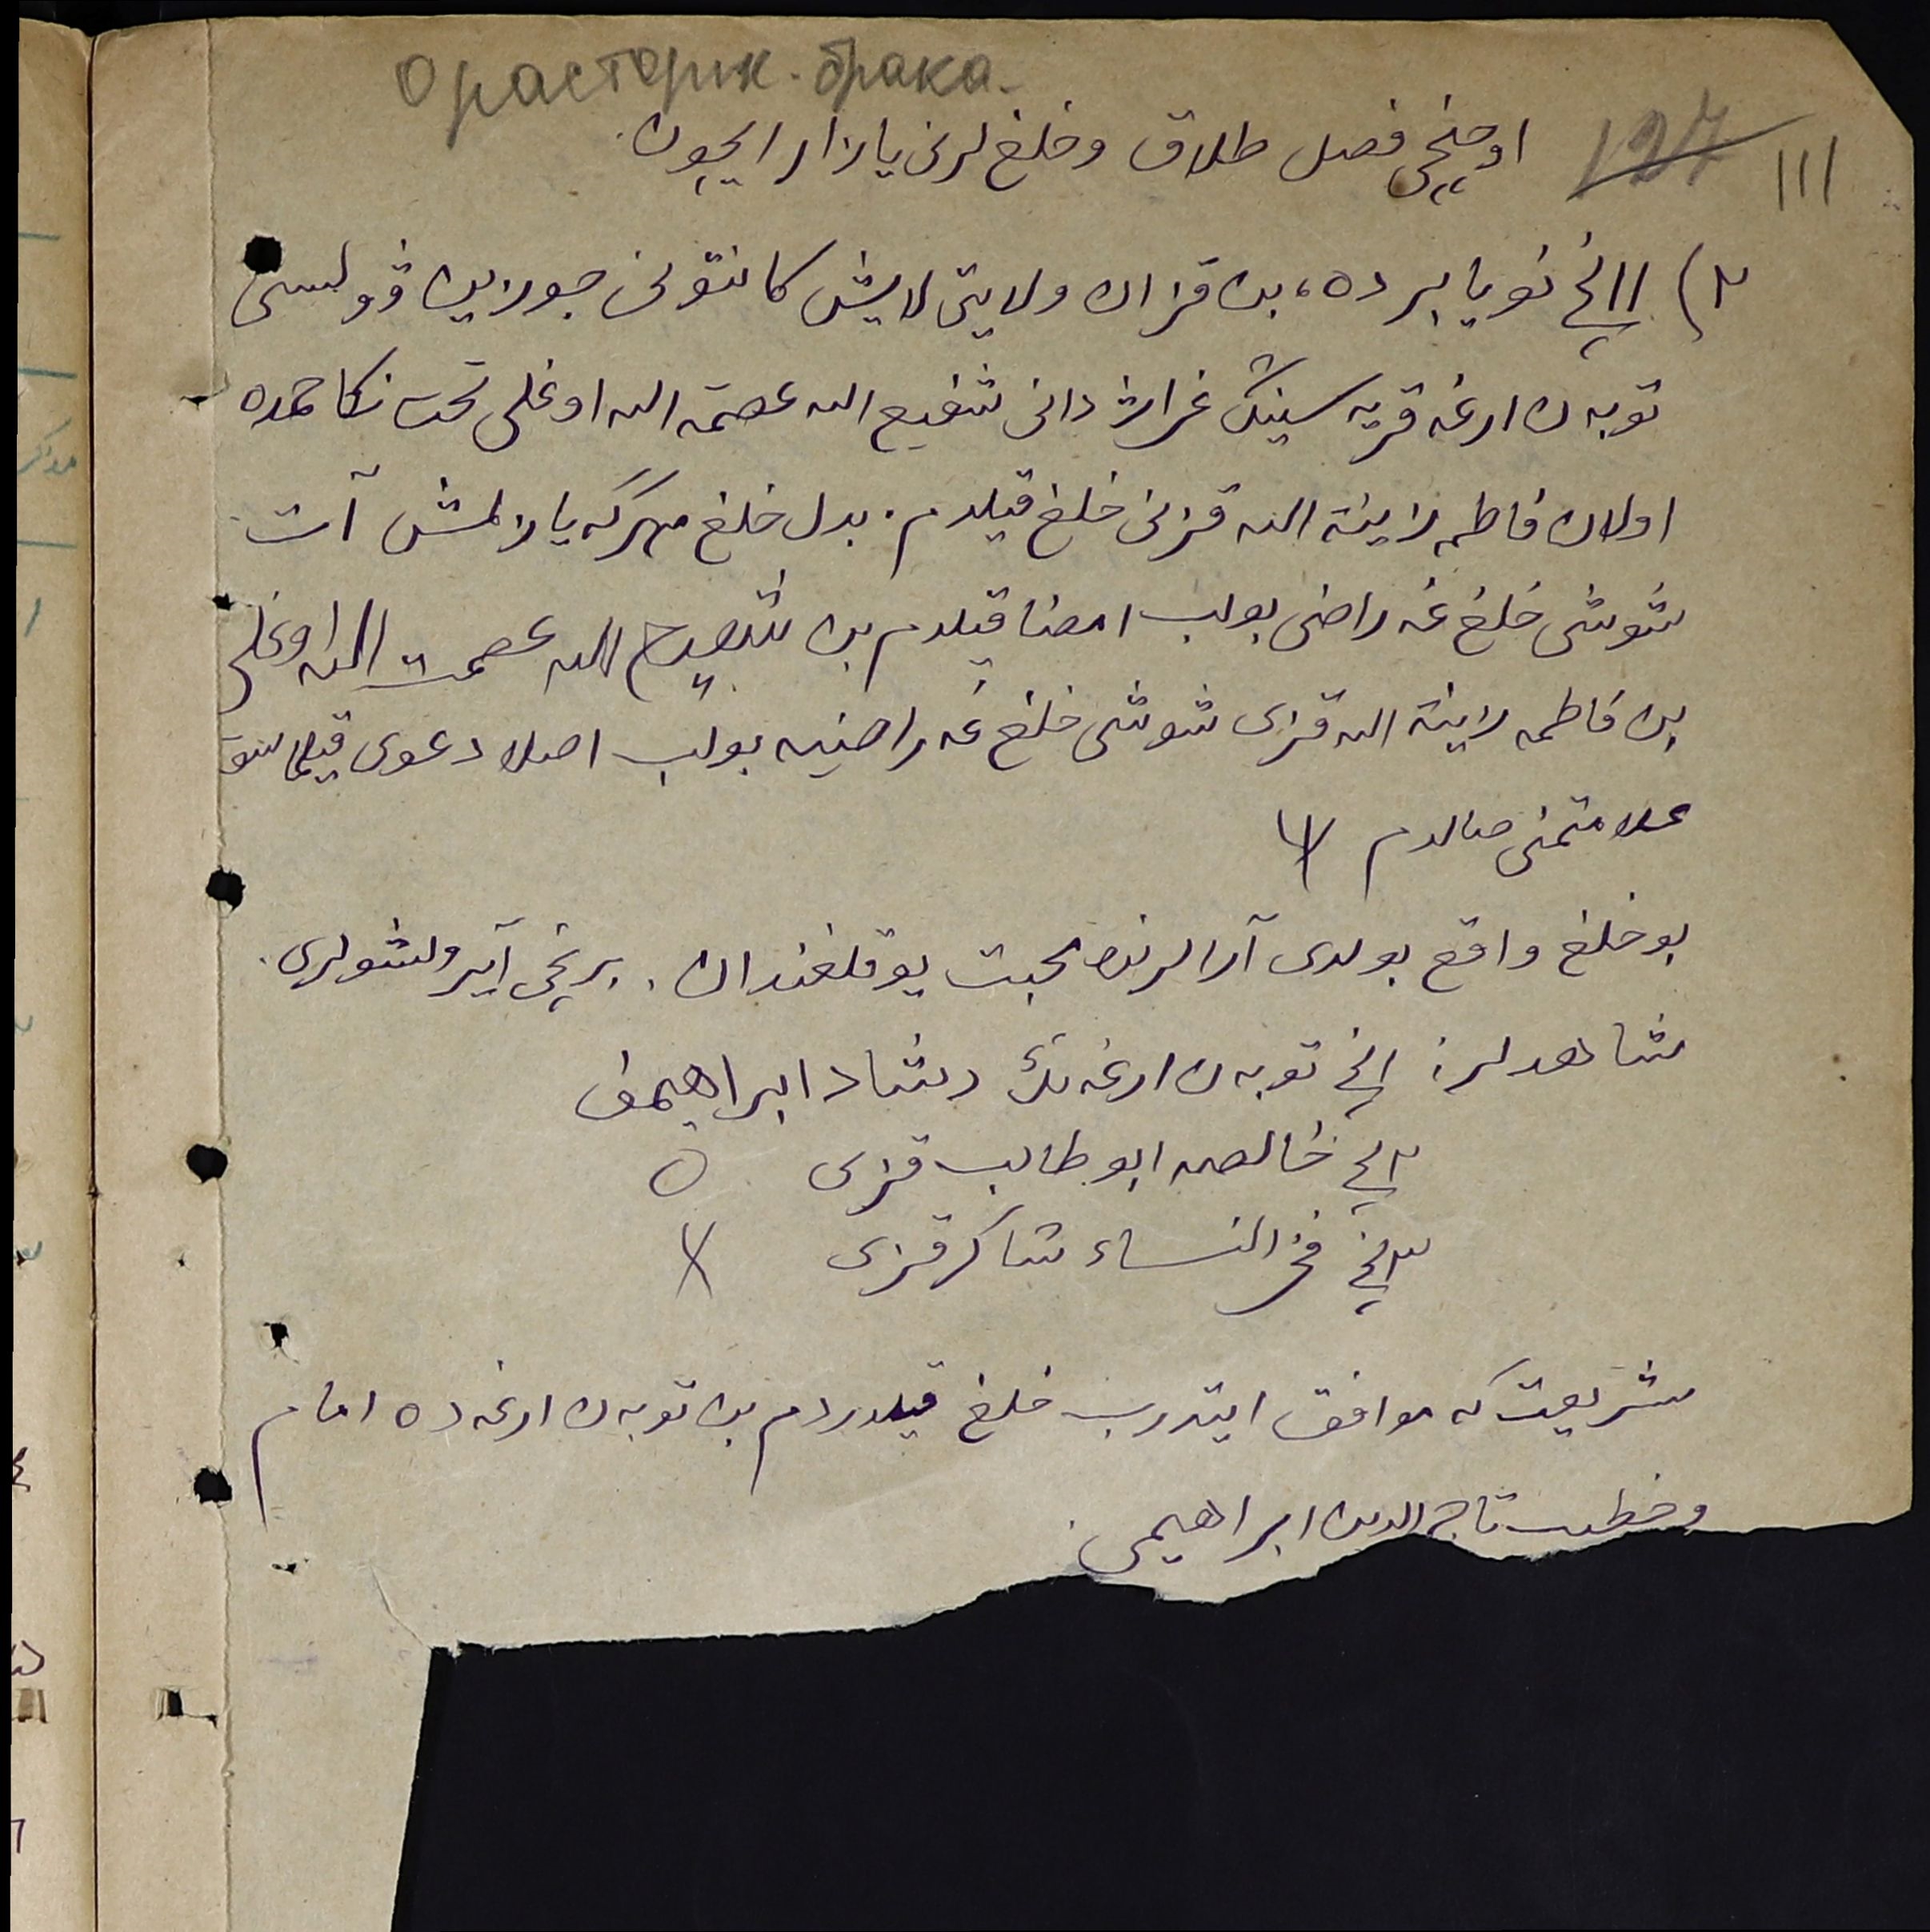 О расторж. брака.
127 111
اوچنچی فصل طلاق وخلغ لرنی یازار ایچون.
٢) ١١ نچی نویابرده، بن قزان ولایتی لایش کانتونی جوراین ڤولسی
توبه ن ارغه قریه سینڭ غراژدانی شفیع الله عصمة الله اوغلی تحت نکاحمده
اولان فاطمه زینة الله قزنی خلغ قیلدم. بدل خلغ مهرگه یازلمش آت
شوشی خلغ غه راضی بولب امضا قیلدم بن شفیع الله عصمت الله اوغلی
بن فاطمه زینة الله قزی شوشی خلغ غه راضیه بولب اصلا دعوی
علامتمنی صالدم
بو خلغ واقع بولدی آرالرنده محبت یوقلغندان. برنچی آیرولشولری.
شاهدلر: ١نچی توبه ن ارغه نڭ رشاد ابراهیمف
٢نچی خالصه ابو طالب قزی
٣نچی فخر النساء شاکر قزی
شریعت که موافق ایتدرب خلغ قیلدردم بن توبه ن ارغه ده امام
وخطیب تاج الدین ابراهیمی.